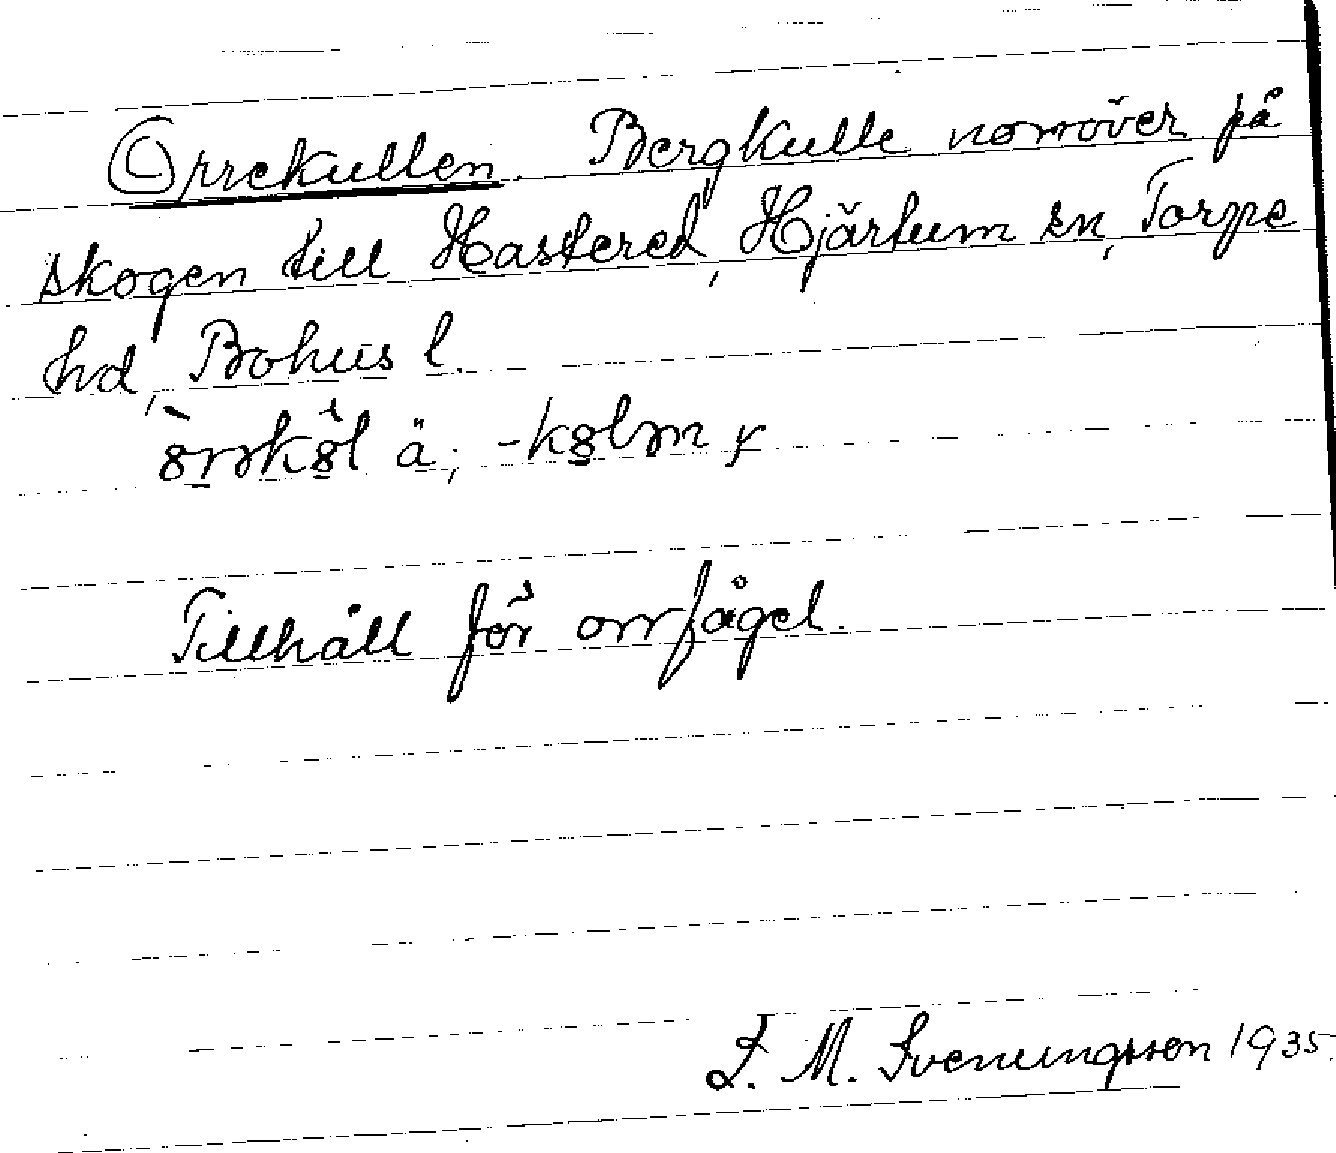 Orrekullen. Bergkulle norröver på
skogen till Hastered, Hjärtum sn, Torpe
hd, Bohus l.
Tillhåll för orrfågel.
F. M. Sveningsson 1935.